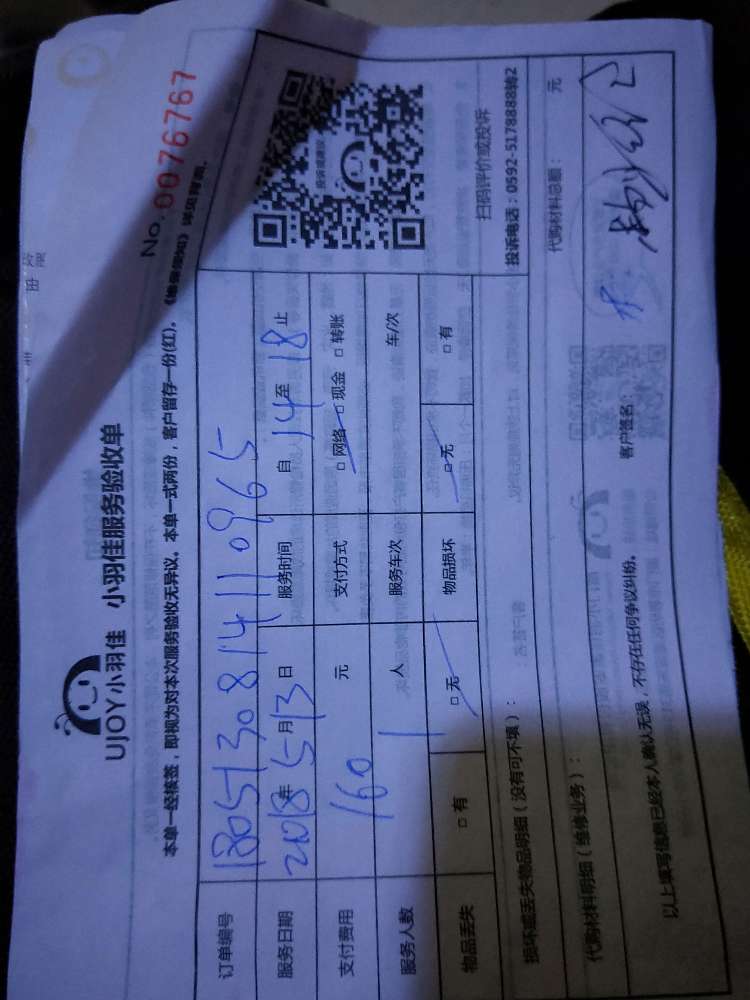 UJOY小羽佳 小羽佳服务验收单
No. 0076767
本单一经核签，即视为对本次服务验收无异议。本单一式两份，客户留存一份(红)。《服务须知》详见背面。
订单编号 1805130814110965
服务日期 2018年5月13日 服务时间 自14至18止
支付费用 160 元 支付方式 □网络 □现金 □转账
服务人数 1 人 服务车次 车/次
物品丢失 □有 □无 物品损坏 □无 □有
投诉或建议
扫码评价或投诉
投诉电话：0592-5178888转2
损坏或丢失物品明细（没有可不填）：
代购材料明细（维修业务）： 代购材料总额： 元
以上填写信息已经本人确认无误，不存在任何争议纠纷。 客户签名：